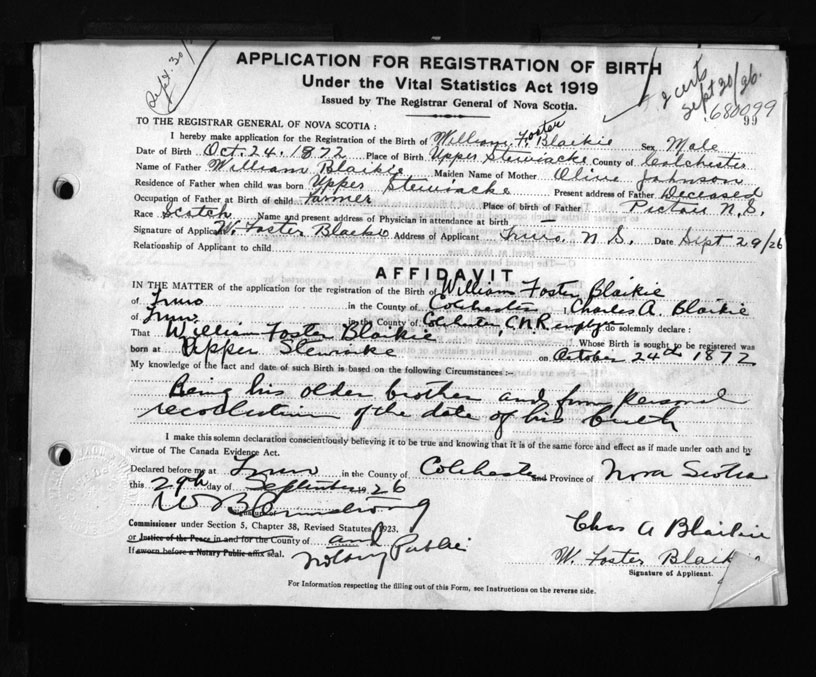 APPLICATION FOR REGISTRATION OF BIRTH
Under the Vital Statistics Act 1919
Issued by The Registrar General of Nova Scotia.
Sept. 30/
2 certs
Sept 30/26.
680099
99
TO THE REGISTRAR GENERAL OF NOVA SCOTIA :
I hereby make application for the Registration of the Birth of William F. Foster Blaikie Sex Male
Date of Birth Oct. 24. 1872 Place of Birth Upper Stewiacke County of Colchester
Name of Father William Blaikie Maiden Name of Mother Olive Johnson
Residence of Father when child was born Upper Stewiacke Present address of Father Deceased
Occupation of Father at Birth of child Farmer Place of birth of Father Pictou N.S.
Race Scotch Name and present address of Physician in attendance at birth —
Signature of Applicant W. Foster Blaikie Address of Applicant Truro, N.S. Date Sept 29/26
Relationship of Applicant to child
AFFIDAVIT
IN THE MATTER of the application for the registration of the Birth of William Foster Blaikie
of Truro in the County of Colchester, Charles A. Blaikie
of Truro in the County of Colchester, C.N.R employe do solemnly declare :
That William Foster Blaikie Whose Birth is sought to be registered was
born at Upper Stewiacke on October 24th 1872
My knowledge of the fact and date of such Birth is based on the following Circumstances :-
Being his older brother and from personal
recollection of the date of his birth
I make this solemn declaration conscientiously believing it to be true and knowing that it is of the same force and effect as if made under oath and by
virtue of The Canada Evidence Act.
Declared before me at Truro in the County of Colchester and Province of Nova Scotia
this 29th day of September 1926
W B Armstrong
Commissioner under Section 5, Chapter 38, Revised Statutes, 1923.
or Justice of the Peace in and for the County of and
If sworn before a Notary Public affix seal. Notary Public
Chas A Blaikie
W. Foster Blaikie
Signature of Applicant.
For Information respecting the filling out of this Form, see Instructions on the reverse side.